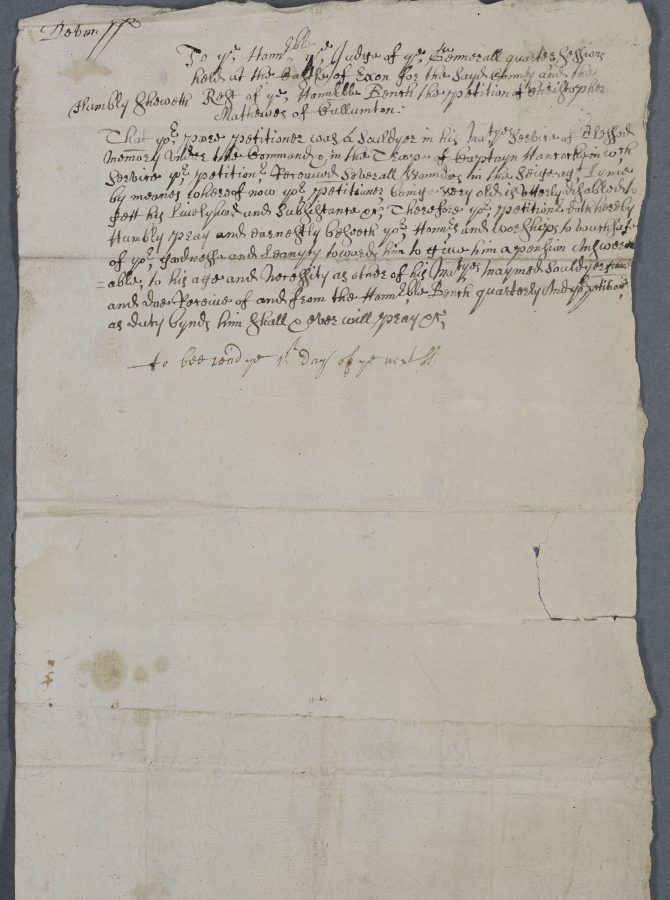 Devon ss
To ye Honrable ye Judge of ye Gennerall quarter Sessions
held at the Castle of Exon for the Sayd County and the
Humbly Sheweth Rest of ye Honrble Bench the petition of Christopher
Mathewes of Cullumton:
That yor pore petitioner was a Souldyer in his Matyes Service of Blessed
memory Under the Command & in the Troope of Captayn Hancocke in wch
Service yor petitionr Receaved Severall Wounds in the Seige agt Lyme
by meanes whereof now yor petitioner beinge very old is utterly disabled to
gett his Livelyhood and Subsistance &c, Therefore yor petitioner doth hereby
Humbly pray and earnestly beseech yor Honrs and worships to vouchsafe
of yor goodnesse and Leanyty towards him to give him a pension Answer
=able, to his age and Necessity as other of his Matyes maymed Souldyers
and doe Receive of and from the Honrble Bench quarterly And yor petitionr
as duty bynds him Shall & ever will pray &c
to bee reād ye 1st day of ye next